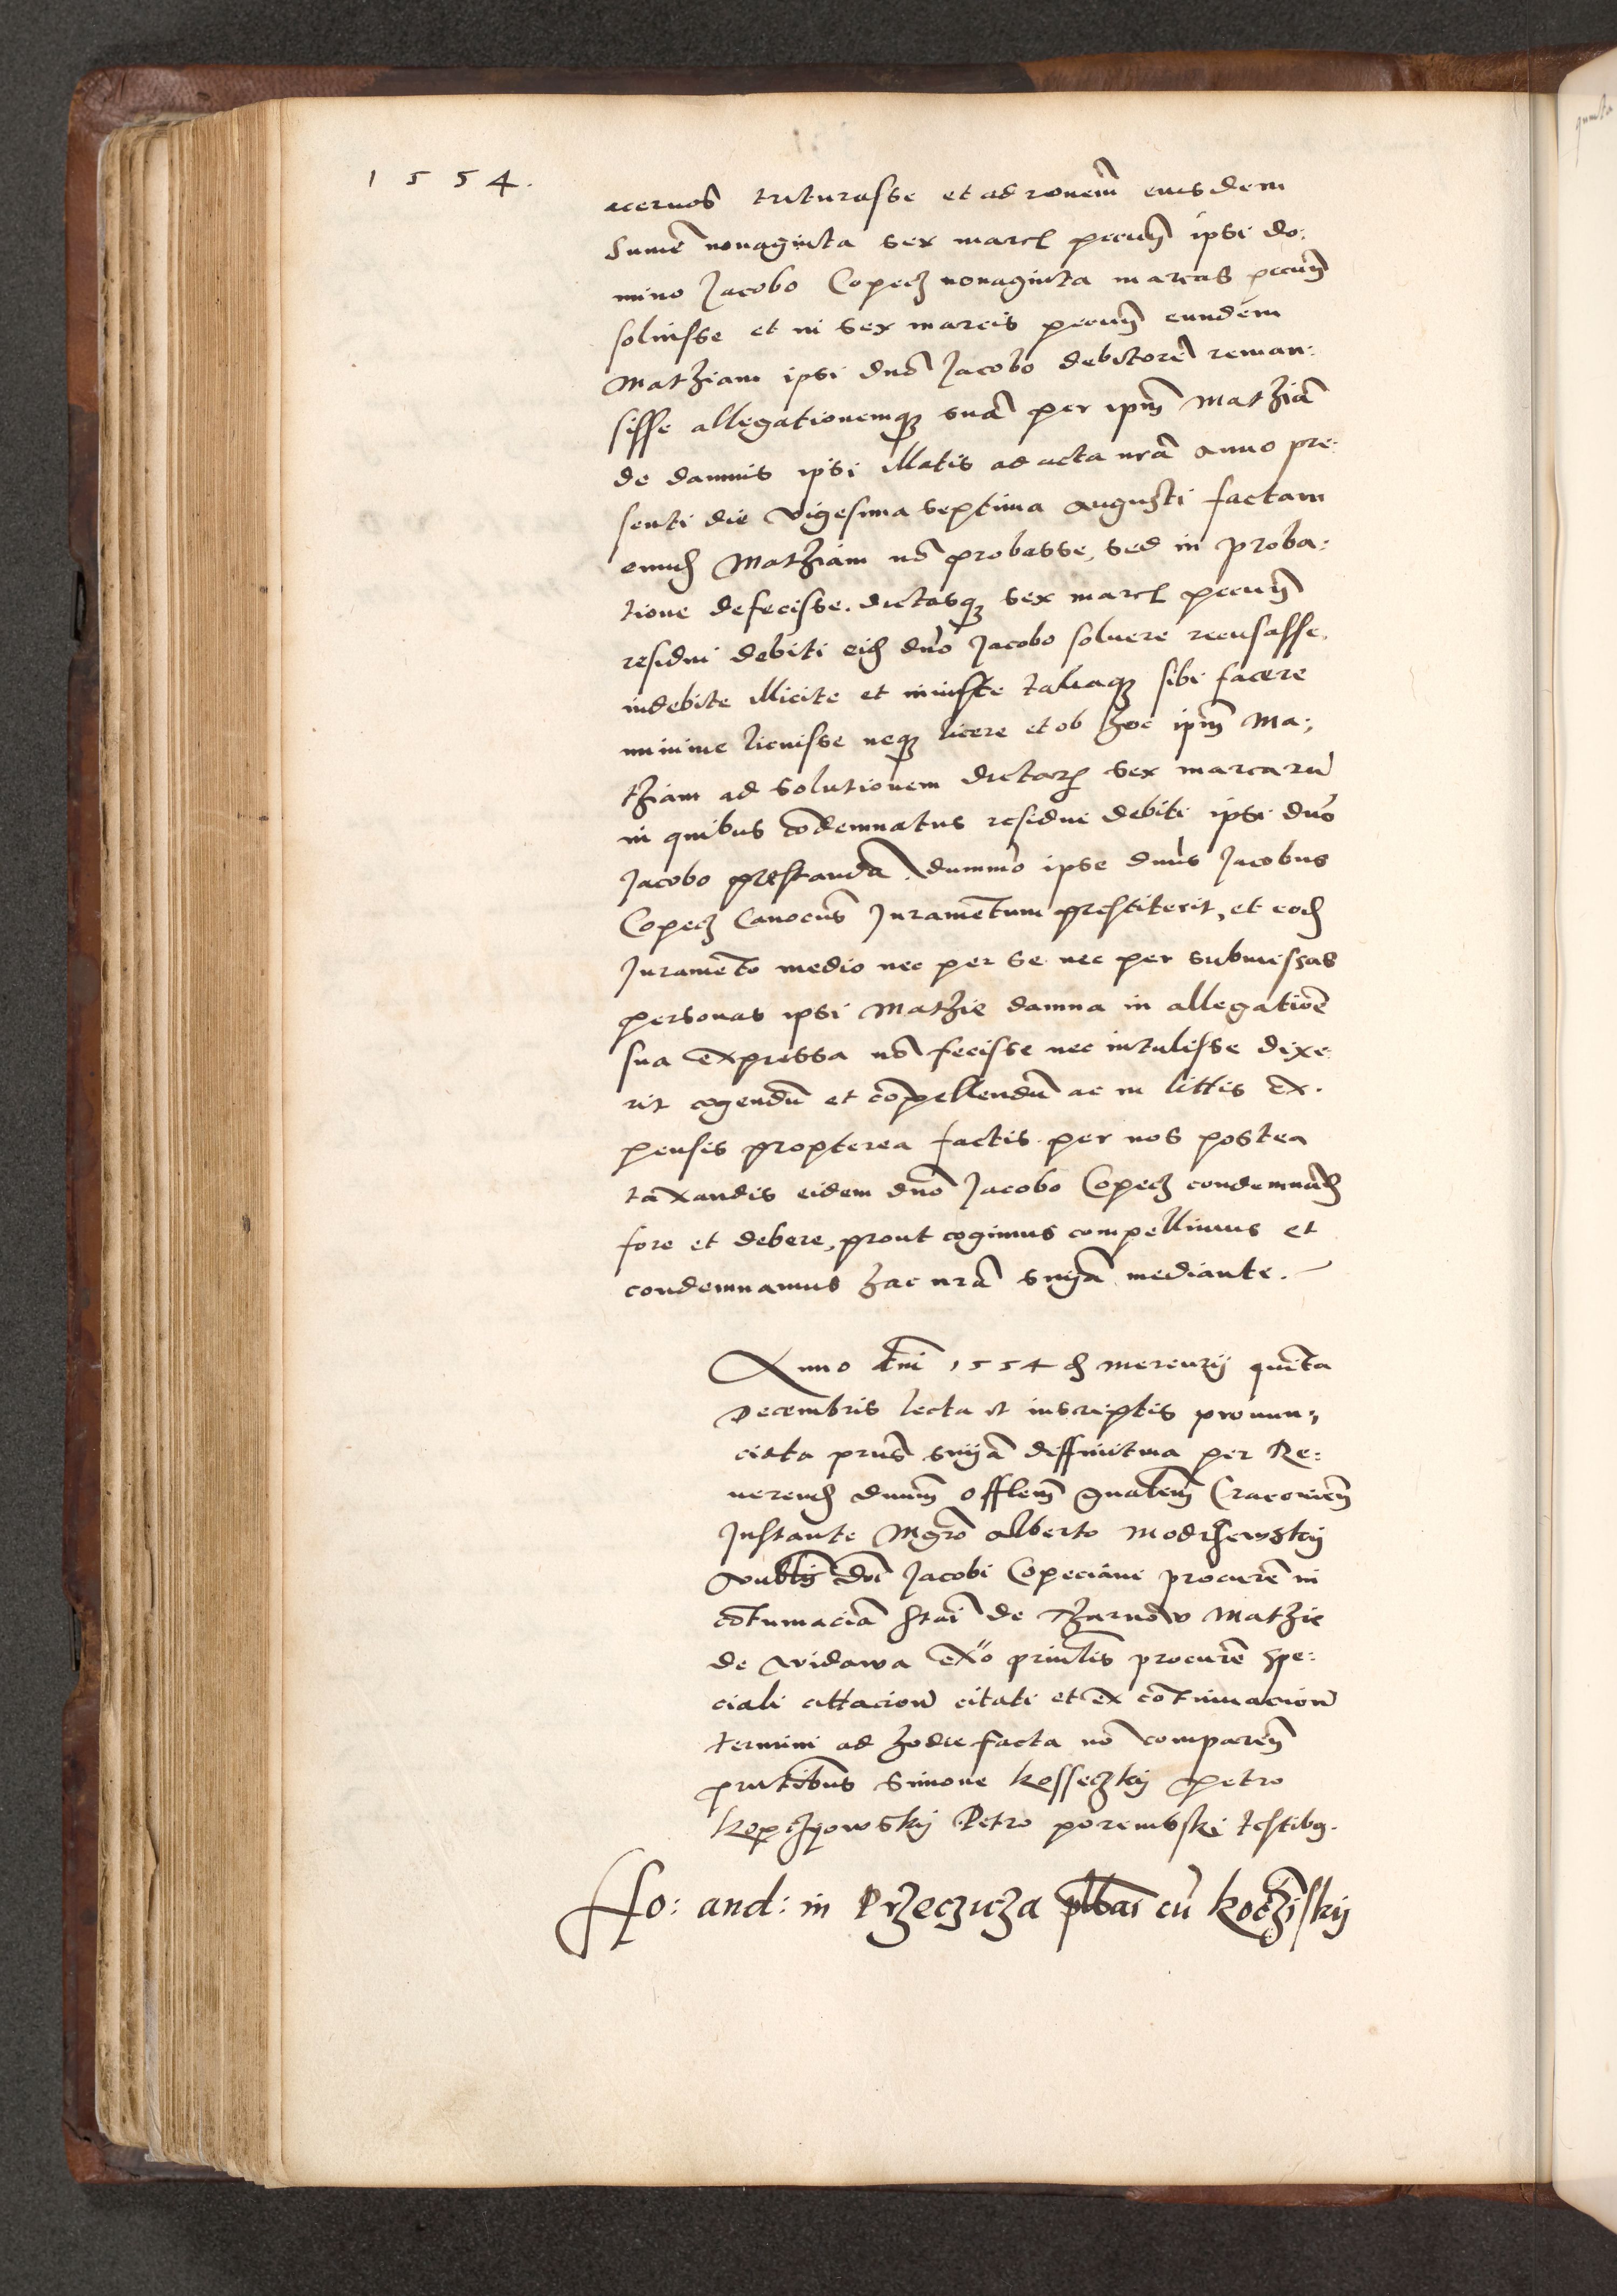 1554.
acervos triturasse et ad ronem̃ eiusdem
Sume nonaginta sex marcꝭ pecuñ ipsi do:
mino Jacobo Copecz nonaginta marcas pecuñ
solvisse et in sex marcis pecuñ eundem
Mathiam ipsi dno Jacobo debitorẽ reman:
sisse allegationemqꝫ suã per ipm̃ Mathiã
de damnis ipsi illatis ad acta nrã anno pre:
senti die vigesima septima Augusti factam
eund Mathiam nõ probasse, sed in proba:
tione defecisse. dictasqꝫ sex marcꝭ pecuñ
residui debiti eid dno Jacobo solvere recusasse,
indebite illicite et iniuste taliaqꝫ sibi facere
minime licuisse neqꝫ licere et ob hoc ipm̃ Ma:
thiam ad solutionem dictarꝝ sex marcarũ
in quibus cõdemnatus residui debiti ipsi dno
Jacobo prestandã. dummõ ipse dnus Jacobus
Copecz Canocus Juramẽtum prestiterit, et eod
Juramẽto medio nec per se nec per submissas
personas ipsi Mathie damna in allegatiõe
sua expressa nõ fecisse nec intulisse dixe:
rit cogendũ et cõpellendũ ac in littis ex:
pensis propterea factis per nos postea
taxandis eidem dno Jacobo Copecz condemnañd
fore et debere, prout cogimus compellimus et
condemnamus hac nrã sñiã mediante.
Anno dni 1554 d Mercurij quĩta
Decembris lecta et inscriptis pronun:
ciata prñs sñiã diffinitiva per Re:
verend dnum offlem̃ gnalem̃ Cracovieñ
Instante Mgrõ Alberto Modrzewskij
dni Jacobi Copeciani procurẽ in
cõtumaciã Stai de Tharnow Mathie
de Widawa exo prinlis procurẽ spe:
ciali cittacioñ citati et ex cõtinuacioñ
termini ad hodie facta nõ compareñ
prñtibus Simone Kosseczkij Petro
Kopczyowskij Petro porembski testibꝫ.
Ho: and: in Przeczicza plbai cũ Koczĩskij